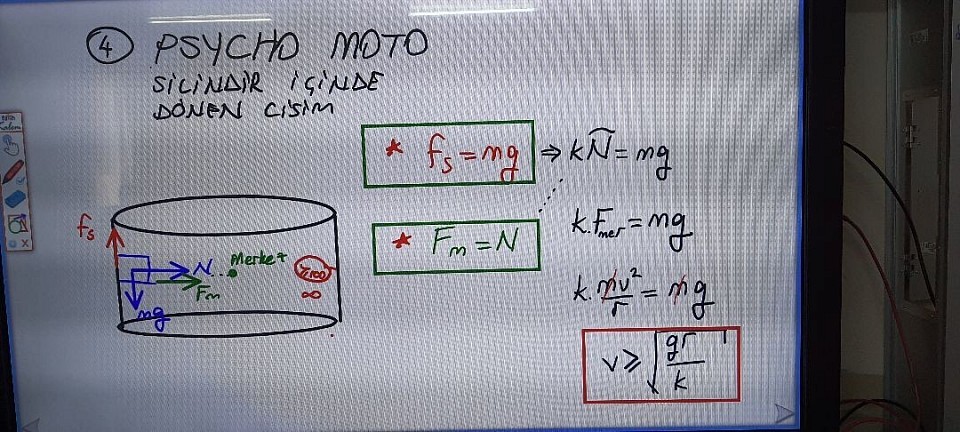 4 PSYCHO MOTO
SİLİNDİR İÇİNDE
DÖNEN CİSİM
* fs = mg ⇒ kN = mg
* Fm = N
k.Fmer = mg
k. mv²/r = mg
v ≥ √(gr/k)
fs
N
Merkez
Fm
mg
∞